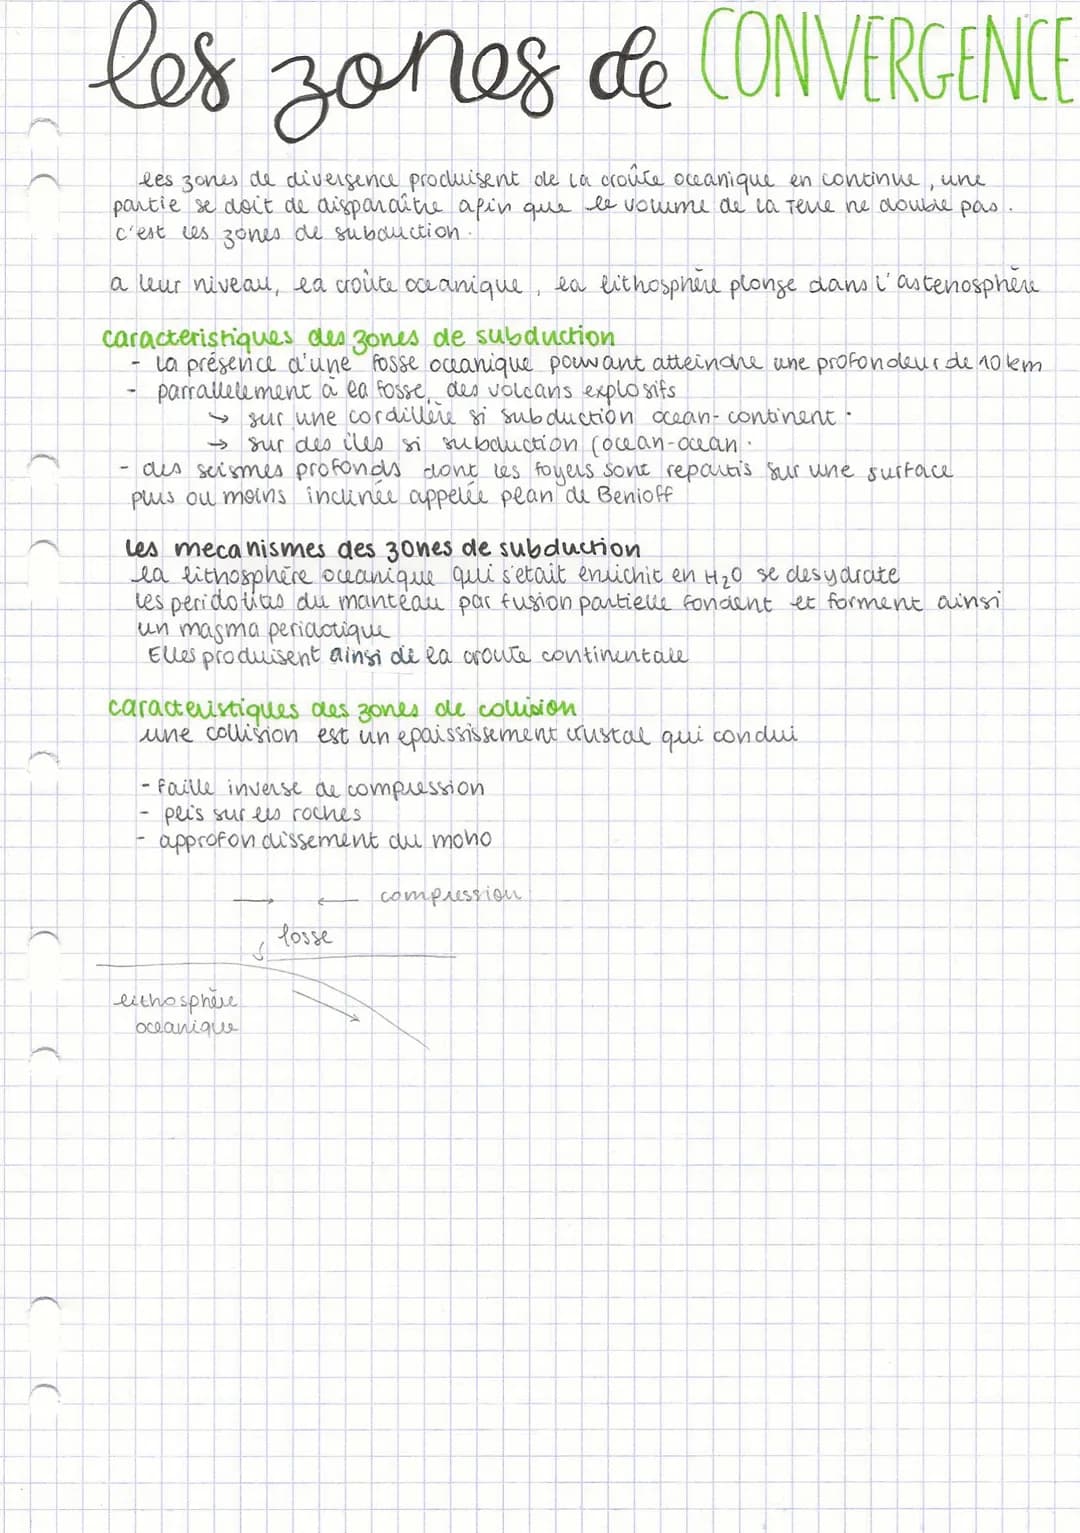 les zones de CONVERGENCE
les zones de divergence produisent de la croûte oceanique en continue, une
partie se doit de disparaître afin que le volume de la Terre ne double pas.
c'est les zones de subduction.
a leur niveau, la croûte oceanique, la lithosphère plonge dans l'astenosphère
caracteristiques des zones de subduction
- la présence d'une fosse oceanique pouvant atteindre une profondeur de 10 km
- parrallelement à la fosse, des volcans explosifs
→ sur une cordillère si subduction ocean-continent.
→ sur des iles si subduction (ocean-ocean.
- des seismes profonds dont les foyers sont repartis sur une surface
plus ou moins inclinée appelée plan de Benioff
les mecanismes des zones de subduction
la lithosphère oceanique qui s'etait enrichit en H₂O se desydrate
les peridotites du manteau par fusion partielle fondent et forment ainsi
un magma peridotique
Elles produisent ainsi de la croute continentale
caracteristiques des zones de collision
une collision est un epaississement crustal qui condui
- faille inverse de compression
- plis sur les roches
- approfondissement du moho
→ ← compression
fosse
lithosphère
oceanique